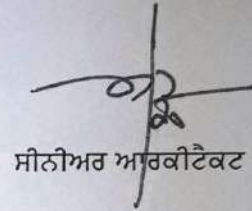 ਸੀਨੀਅਰ ਆਰਕੀਟੈਕਟ